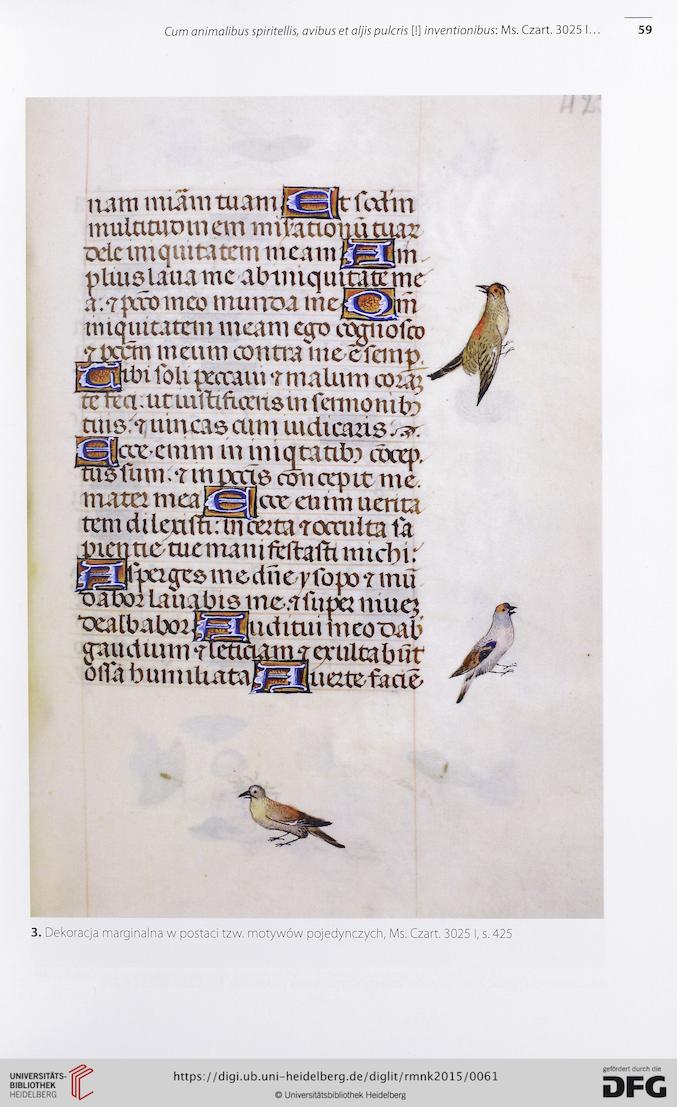 Cum animalibus spiritellis, avibus et aljis pulcris [!] inventionibus: Ms. Czart. 3025 I… 59
nam miām tuam Et scdm
multitudinem misationū tuaꝝ
dele iniquitatem meam Am
plius laua me ab iniquitate me
a: ⁊ pcco meo munda me Qm̄
iniquitatem meam ego cognosco
⁊ pccm meum contra me ē semp.
Tibi soli peccaui ⁊ malum coraꝫ
te feci: ut iustificeris in sermonibꝫ
tuis: ⁊ uincas cum iudicaris
Ecce enim in iniqtatibꝫ cōcep
tus sum: ⁊ in pccis concepit me
mater mea Ecce enim uerita
tem dilexisti: incerta ⁊ occulta sa
pientie tue manifestasti michi:
Asperges me dn̄e ysopo ⁊ mū
dabor lauabis me ⁊ super niueꝫ
dealbabor Auditui meo dab
gaudium ⁊ leticiam ⁊ exultabūt
ossa humiliata Auerte faciē
3. Dekoracja marginalna w postaci tzw. motywów pojedynczych, Ms. Czart. 3025 I, s. 425
UNIVERSITÄTS-
BIBLIOTHEK
HEIDELBERG
https://digi.ub.uni-heidelberg.de/diglit/rmnk2015/0061
© Universitätsbibliothek Heidelberg
gefördert durch die
DFG